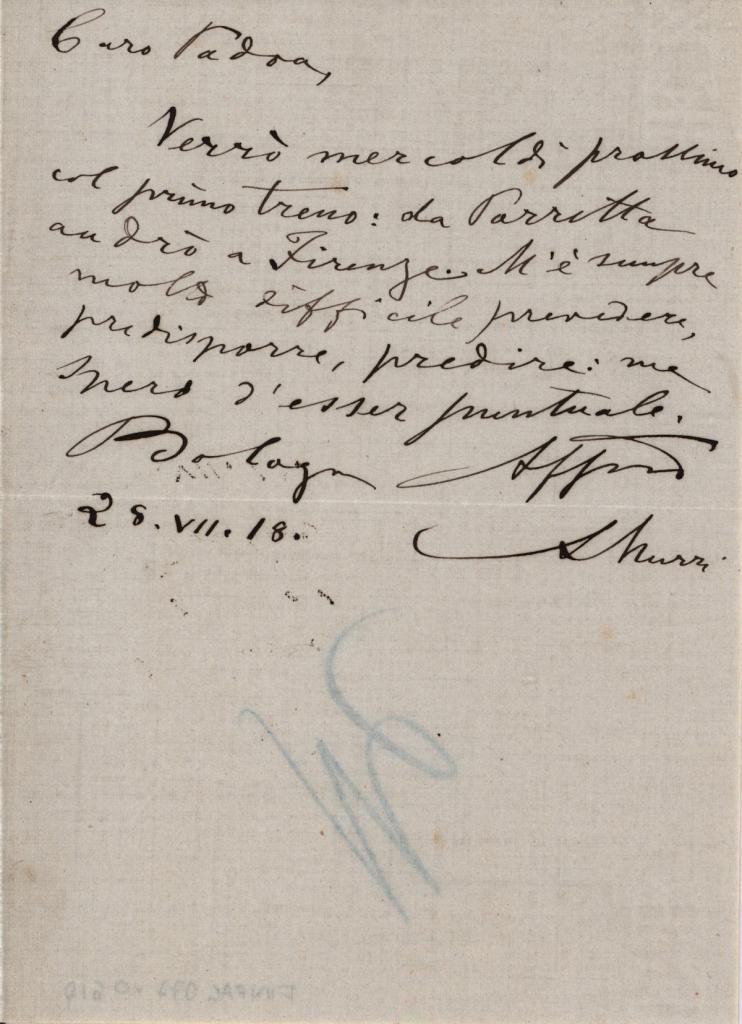 Caro Padoa,
Verrò mercoldì prossimo
col primo treno: da Porretta
andrò a Firenze. M'è sempre
molto difficile prevedere,
predisporre, predire: ma
spero d'esser puntuale.
Bologna
28.VII.18.